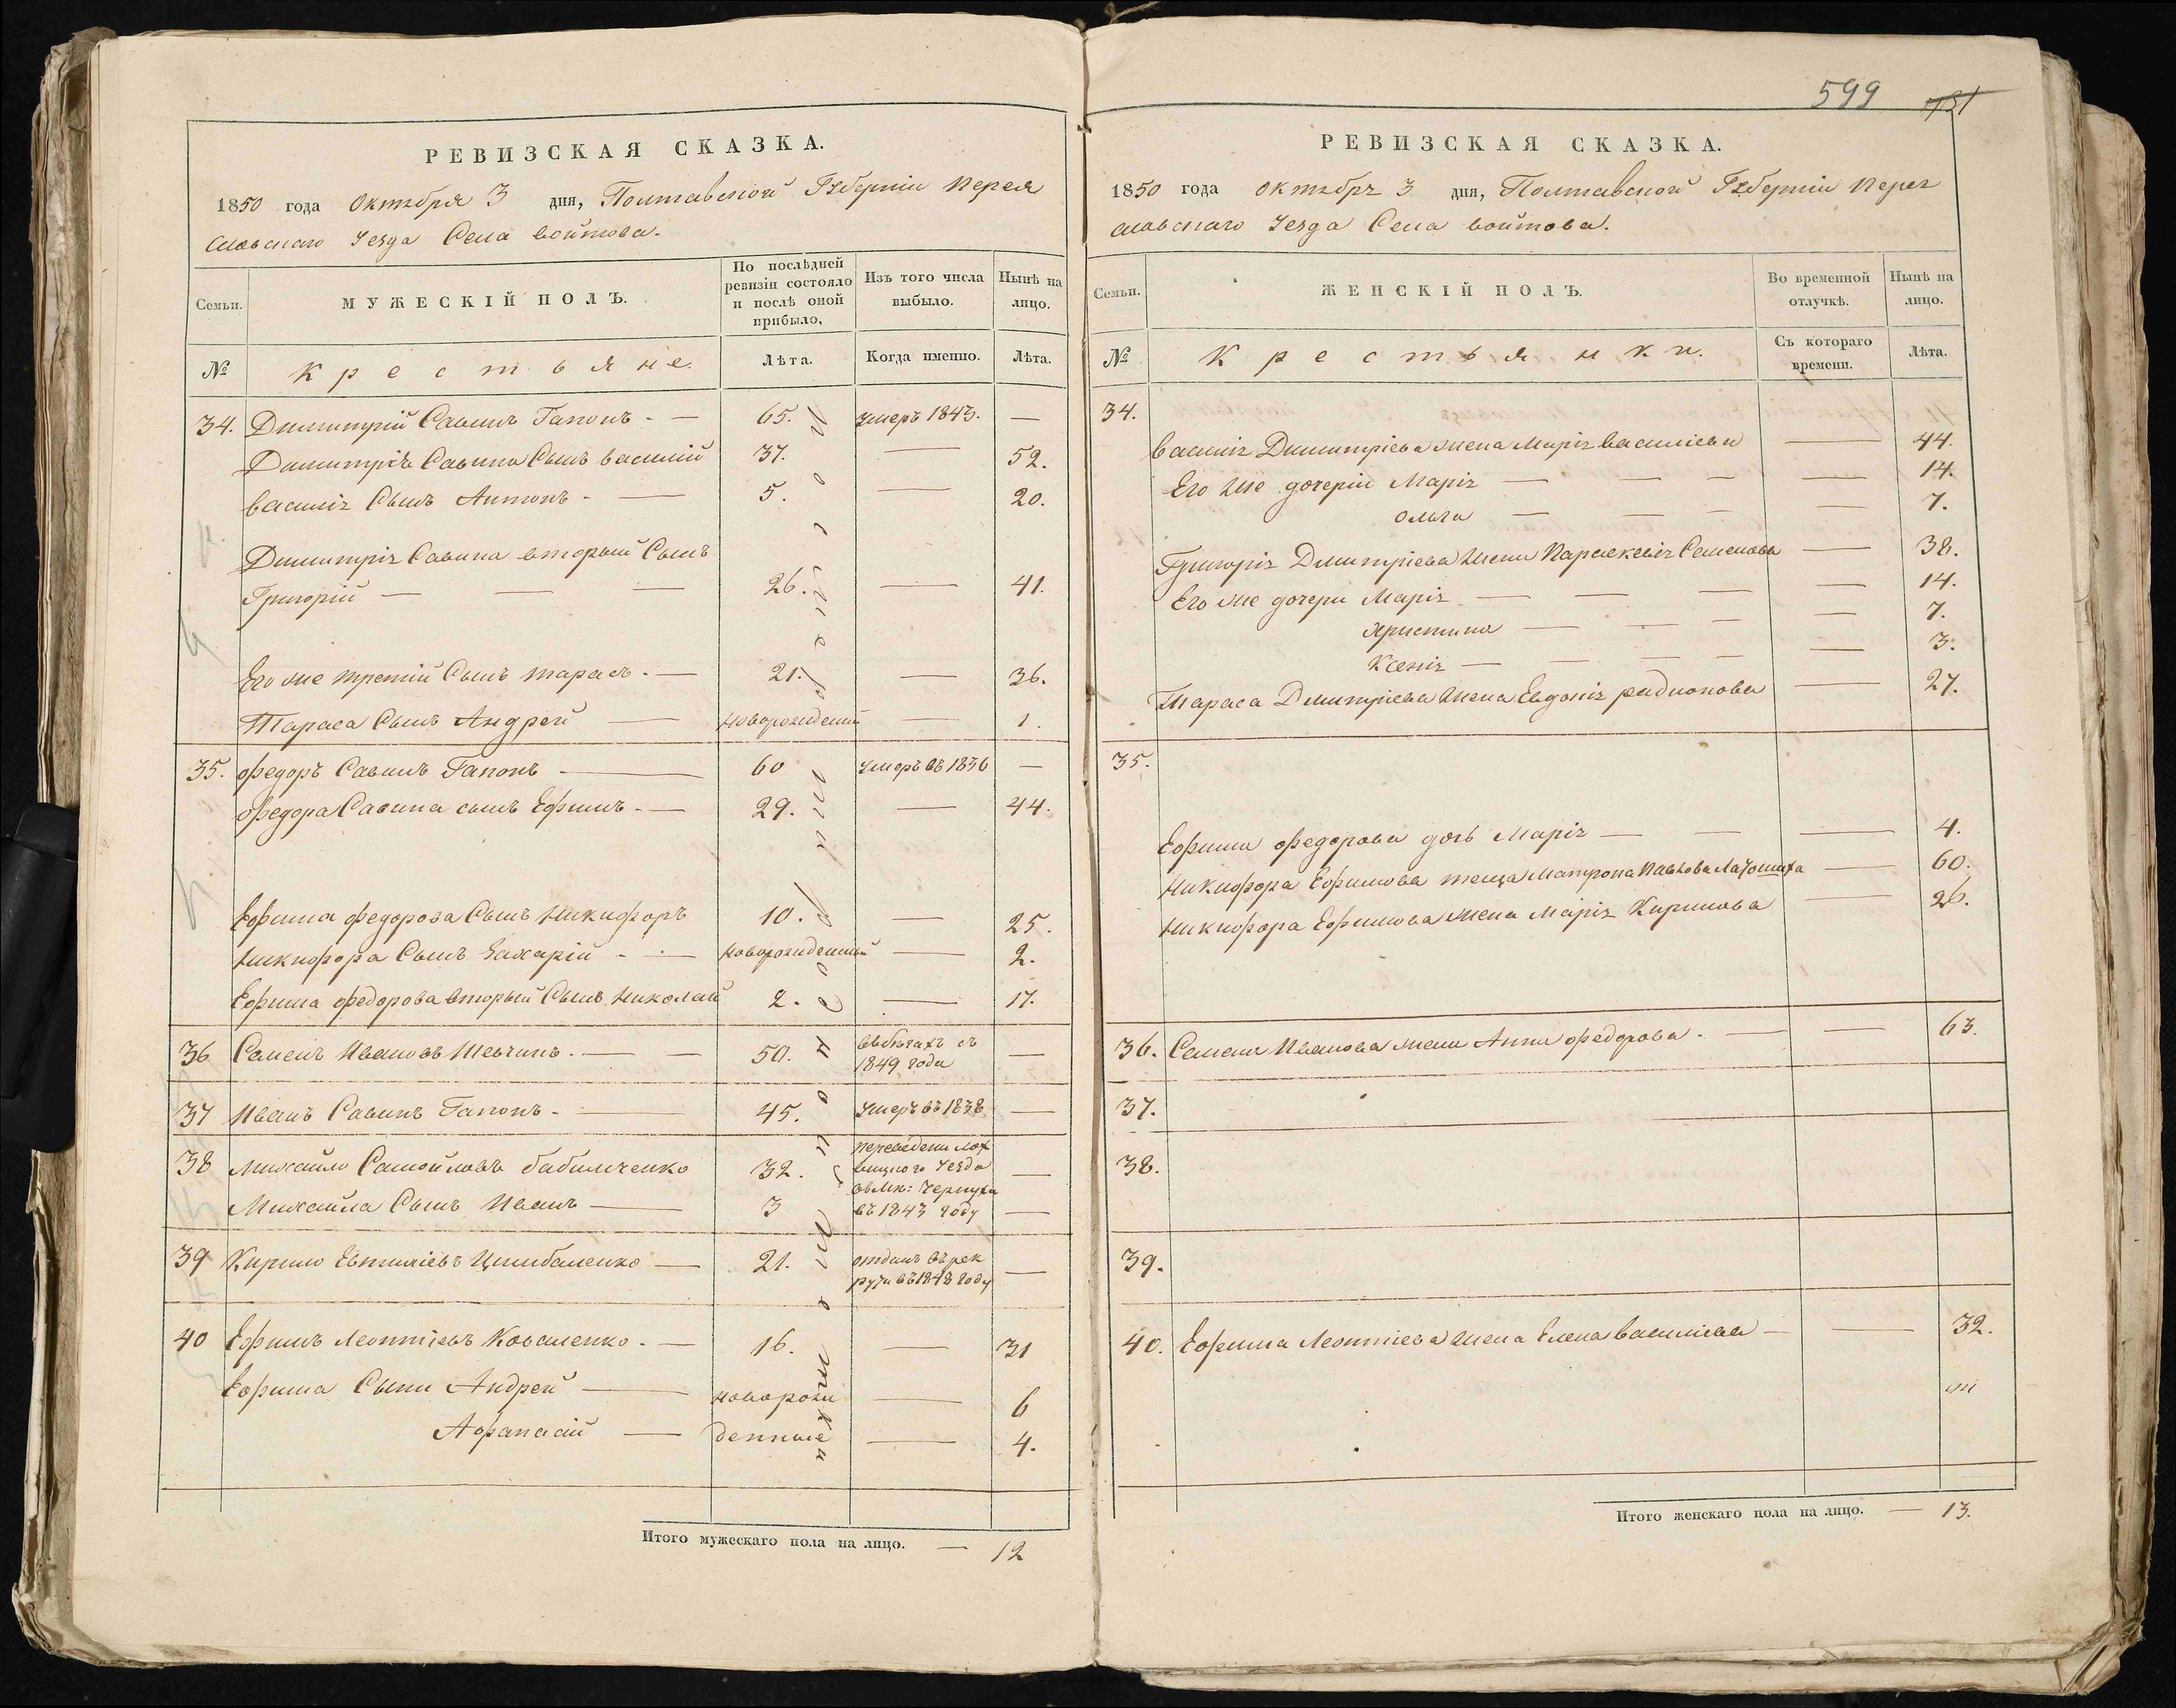 РЕВИЗСКАЯ СКАЗКА.
1850 года Октября 3 дня, Полтавской Губерніи Перея
славскаго Уезда Села войтова.
Семьи.
МУЖЕСКІЙ ПОЛЪ.
По послѣдней
ревизіи состояло
и послѣ оной
прибыло,
Изъ того числа
выбыло.
Нынѣ на
лицо.
№
Крестьяне.
Лѣта.
Когда именно.
Лѣта.
34. Димитрій Савинъ Гапонъ - — 65. умеръ 1843. —
Димитрія Савина Сынъ василій 37. — 52.
василія Сынъ Антонъ - — 5. — 20.
Димитрія Савина вторый Сынъ
Григорій — — — 26. — 41.
Его же третій Сынъ тарасъ. — 21. — 36.
Тараса Сынъ Андрей — новорожденный 1.
35. федоръ Савинъ Гапонъ — 60 умеръ въ 1836 —
федора Савина сынъ Ефимъ. — 29. — 44.
Ефима федорова Сынъ Никифоръ 10. — 25.
Никифора Сынъ Захарій - — новорожденный — 2.
Ефима федорова вторый Сынъ Николай 2. — 17.
36 Семенъ Ивановъ Шевчинъ. — — 50. въбегахъ съ
1849 года —
37 Иванъ Савинъ Гапонъ - — 45. умеръ въ 1838 —
38 Михайло Самойловъ бабиченко 32. переведены лох
вицкого Уезда —
Михайла Сынъ Иванъ — 3 въ мк: Чернуха
въ 1843 году —
39 Кирило Евтихіевъ Цимбаленко — 21. отданъ въ рек
руты въ 1848 году —
40 Ефимъ Леонтіевъ Коваленко. — 16. — 31
Ефима Сыны Андрей — новорож — 6
Афанасій — денные — 4.
Итого мужескаго пола на лицо. — 12
599 731
РЕВИЗСКАЯ СКАЗКА.
1850 года октября 3 дня, Полтавской Губерніи Перея
славскаго Уезда Села войтова.
Семьи.
ЖЕНСКІЙ ПОЛЪ.
Во временной
отлучкѣ.
Нынѣ на
лицо.
№
Крестьянки.
Съ котораго
времени.
Лѣта.
34.
василія Димитріева жена Марія василіева — 44.
Его же дочеріи Марія — — — — 14.
Ольга — — — — 7.
Григорія Дмитріева жена Параскевія Семенова — 38.
Его же дочери Марія — — — — 14.
Христина — — — — 7.
Ксенія — — — — — 3.
Тараса Дмитріева жена Евдокія радионова — 27.
35.
Ефима федорова дочь Марія — — — 4.
Никифора Ефимова теща Матрона Павлова — 60.
Никифора Ефимова жена Марія Кирилова — 26.
36. Семена Иванова жена Анна федорова. — — 63.
37.
38.
39.
40. Ефима Леонтіева жена Елена василіева — — 32.
Итого женскаго пола на лицо. — 13.